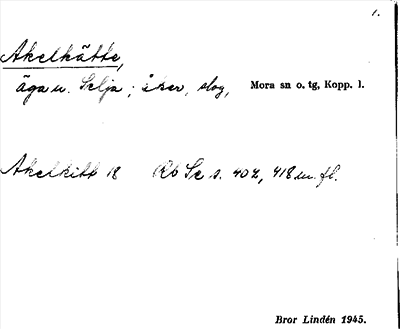 1.
Akelkätte,
äga u. Selja; åker, slog, Mora sn o. tg, Kopp. l.
Akelkitt 18 Rb Se s. 402, 418 m. fl.
Bror Lindén 1945.